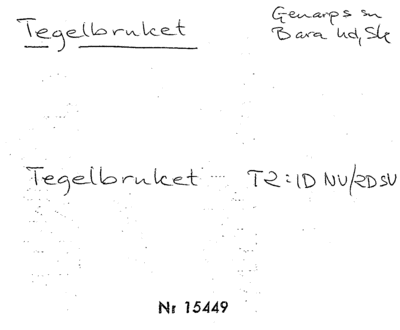 Tegelbruket
Genarps sn
Bara hd, Sk
Tegelbruket T2:1D NV/2D SV
Nr 15449